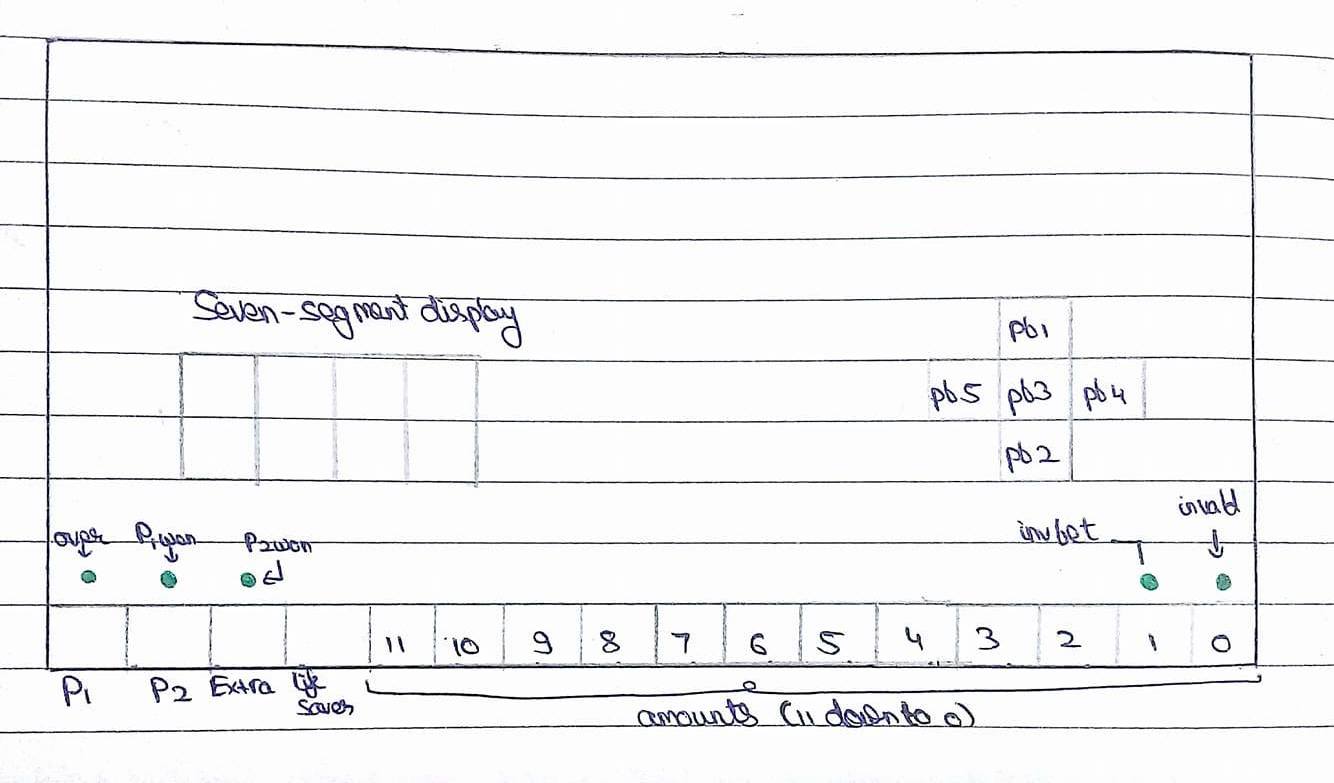 Seven-segment display
pb1
pb5 pb3 pb4
pb2
over P1won P2won
invbet invald
11 10 9 8 7 6 5 4 3 2 1 0
P1 P2 Extra life
saver
amounts (11 downto 0)